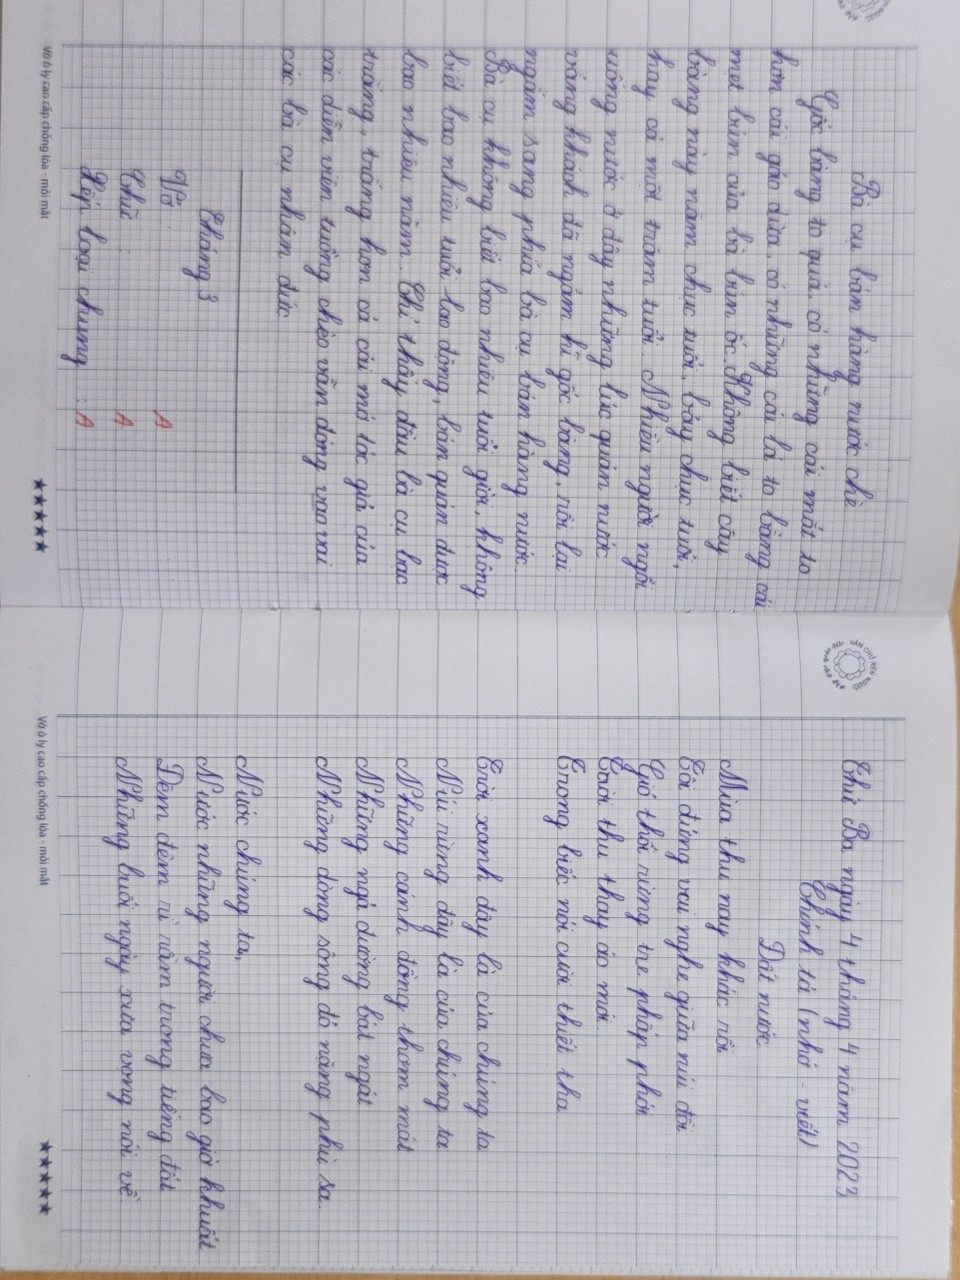 Bà cụ bán hàng nước chè
Gốc bàng to quá, có những cái mắt to
hơn cái gáo dừa, có những cái lá to bằng cái
mẹt bún của bà bún ốc. Không biết cây
bàng này năm chục tuổi, bảy chục tuổi,
hay cả một trăm tuổi. Nhiều người ngồi
uống nước ở đây những lúc quán nước
vắng khách đã ngắm kĩ gốc bàng, rồi lại
ngắm sang phía bà cụ bán hàng nước.
Bà cụ không biết bao nhiêu tuổi giời, không
biết bao nhiêu tuổi lao động, bán quán được
bao nhiêu năm. Chỉ thấy đầu bà cụ bạc
trắng, trắng hơn cả cái mớ tóc giả của
các diễn viên tuồng chèo vẫn đóng vào vai
các bà cụ nhân đức
Tháng 3
Vở : A
Chữ : A
Xếp loại chung : A
Vở ô ly cao cấp chống lóa - mỏi mắt
NÉT CHỮ NẾT NGƯỜI
Thứ Ba ngày 4 tháng 4 năm 2023
Chính tả (nhớ - viết)
Đất nước
Mùa thu nay khác rồi
Tôi đứng vui nghe giữa núi đồi
Gió thổi rừng tre phấp phới
Trời thu thay áo mới
Trong biếc nói cười thiết tha
Trời xanh đây là của chúng ta
Núi rừng đây là của chúng ta
Những cánh đồng thơm mát
Những ngả đường bát ngát
Những dòng sông đỏ nặng phù sa.
Nước chúng ta,
Nước những người chưa bao giờ khuất
Đêm đêm rì rầm trong tiếng đất
Những buổi ngày xưa vọng nói về
Vở ô ly cao cấp chống lóa - mỏi mắt